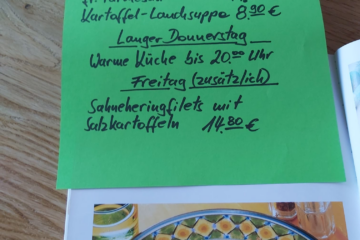 Kartoffel-Lauchsuppe 8,90 €
Langer Donnerstag
Warme Küche bis 20,00 Uhr
Freitag (zusätzlich)
Sahneheringfilets mit
Salzkartoffeln 14,80 €